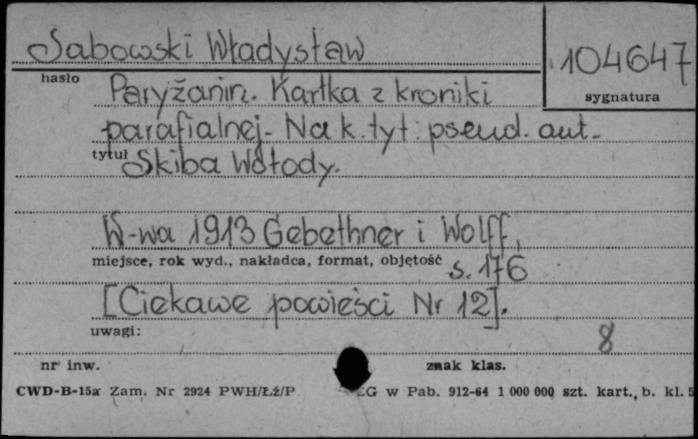 Sabowski Władysław
104647
hasło
sygnatura
Paryżanin. Kartka z kroniki
parafialnej. Na k. tyt: pseud. aut.
tytuł Skiba Wołody.
W-wa 1913 Gebethner i Wolff,
miejsce, rok wyd., nakładca, format, objętość s. 176
[Ciekawe powieści Nr 12].
uwagi:
8
nr inw. znak klas.
CWD-B-15a Zam. Nr 2924 PWH/Łź/P ŁG w Pab. 912-64 1 000 000 szt. kart., b. kl. 5